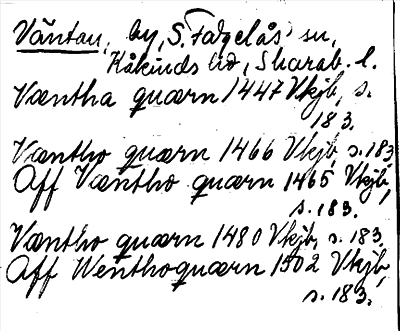 Väntan, by, S. Fågelås sn,
Kåkinds hd, Skarab. l.
Væntha quærn 1447 Vkjb, s.
183.
Væntho quærn 1466 Vkjb, s. 183
Aff Væntho quærn 1465 Vkjb,
s. 183.
Væntho quærn 1480 Vkjb, s. 183.
Aff Wenthoquærn 1502 Vkjb,
s. 183.